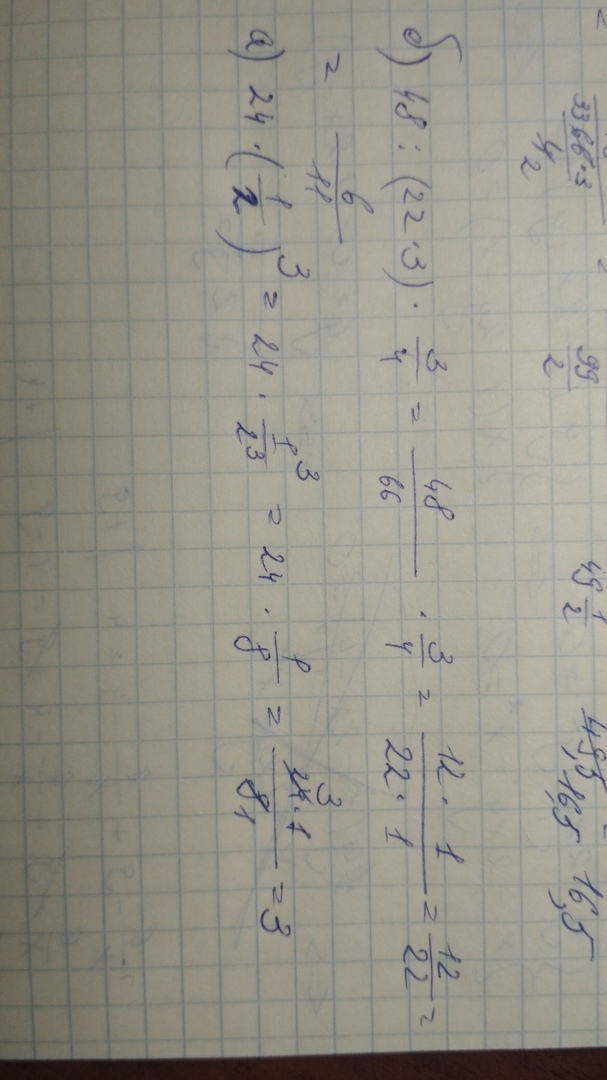 33 66·3 / 4 2 = 99/2 49 1/2 49,5 16,5 16,5
б) 48 : (22·3) · 3/4 = 48/66 · 3/4 = 12·1/22·1 = 12/22 =
= 6/11
а) 24 · (1/2)³ = 24 · 1³/2³ = 24 · 1/8 = 24 3·1/8 1 = 3